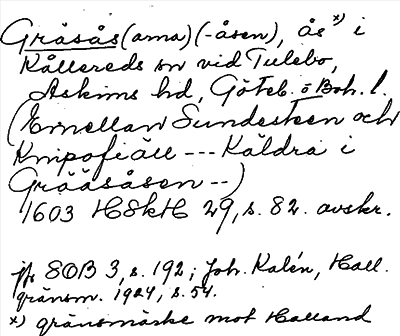 Gräsås (arna) (-åsen), ås *) i
Kållereds sn vid Tulebo,
Askims hd, Göteb. o Boh. l.
(Emellan Sundesteen och
Knipofiäll --- Käldra i
Grååsåsen --)
1603 HSkH 29, s. 82. avskr.
jfr SOB 3, s. 192; Joh. Kalén, Hall.
gränsm. 1924, s. 54.
*) gränsmärke mot Halland